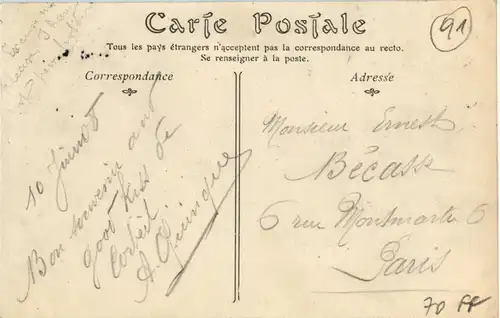 Carte Postale
91
Tous les pays étrangers n'acceptent pas la correspondance au recto.
Se renseigner à la poste.
Correspondance
Adresse
10
Bon souvenir and
good kiss de
Corbeil
A.
Monsieur Ernest
Bécass
6 rue Montmartre 6
Paris
70 FF